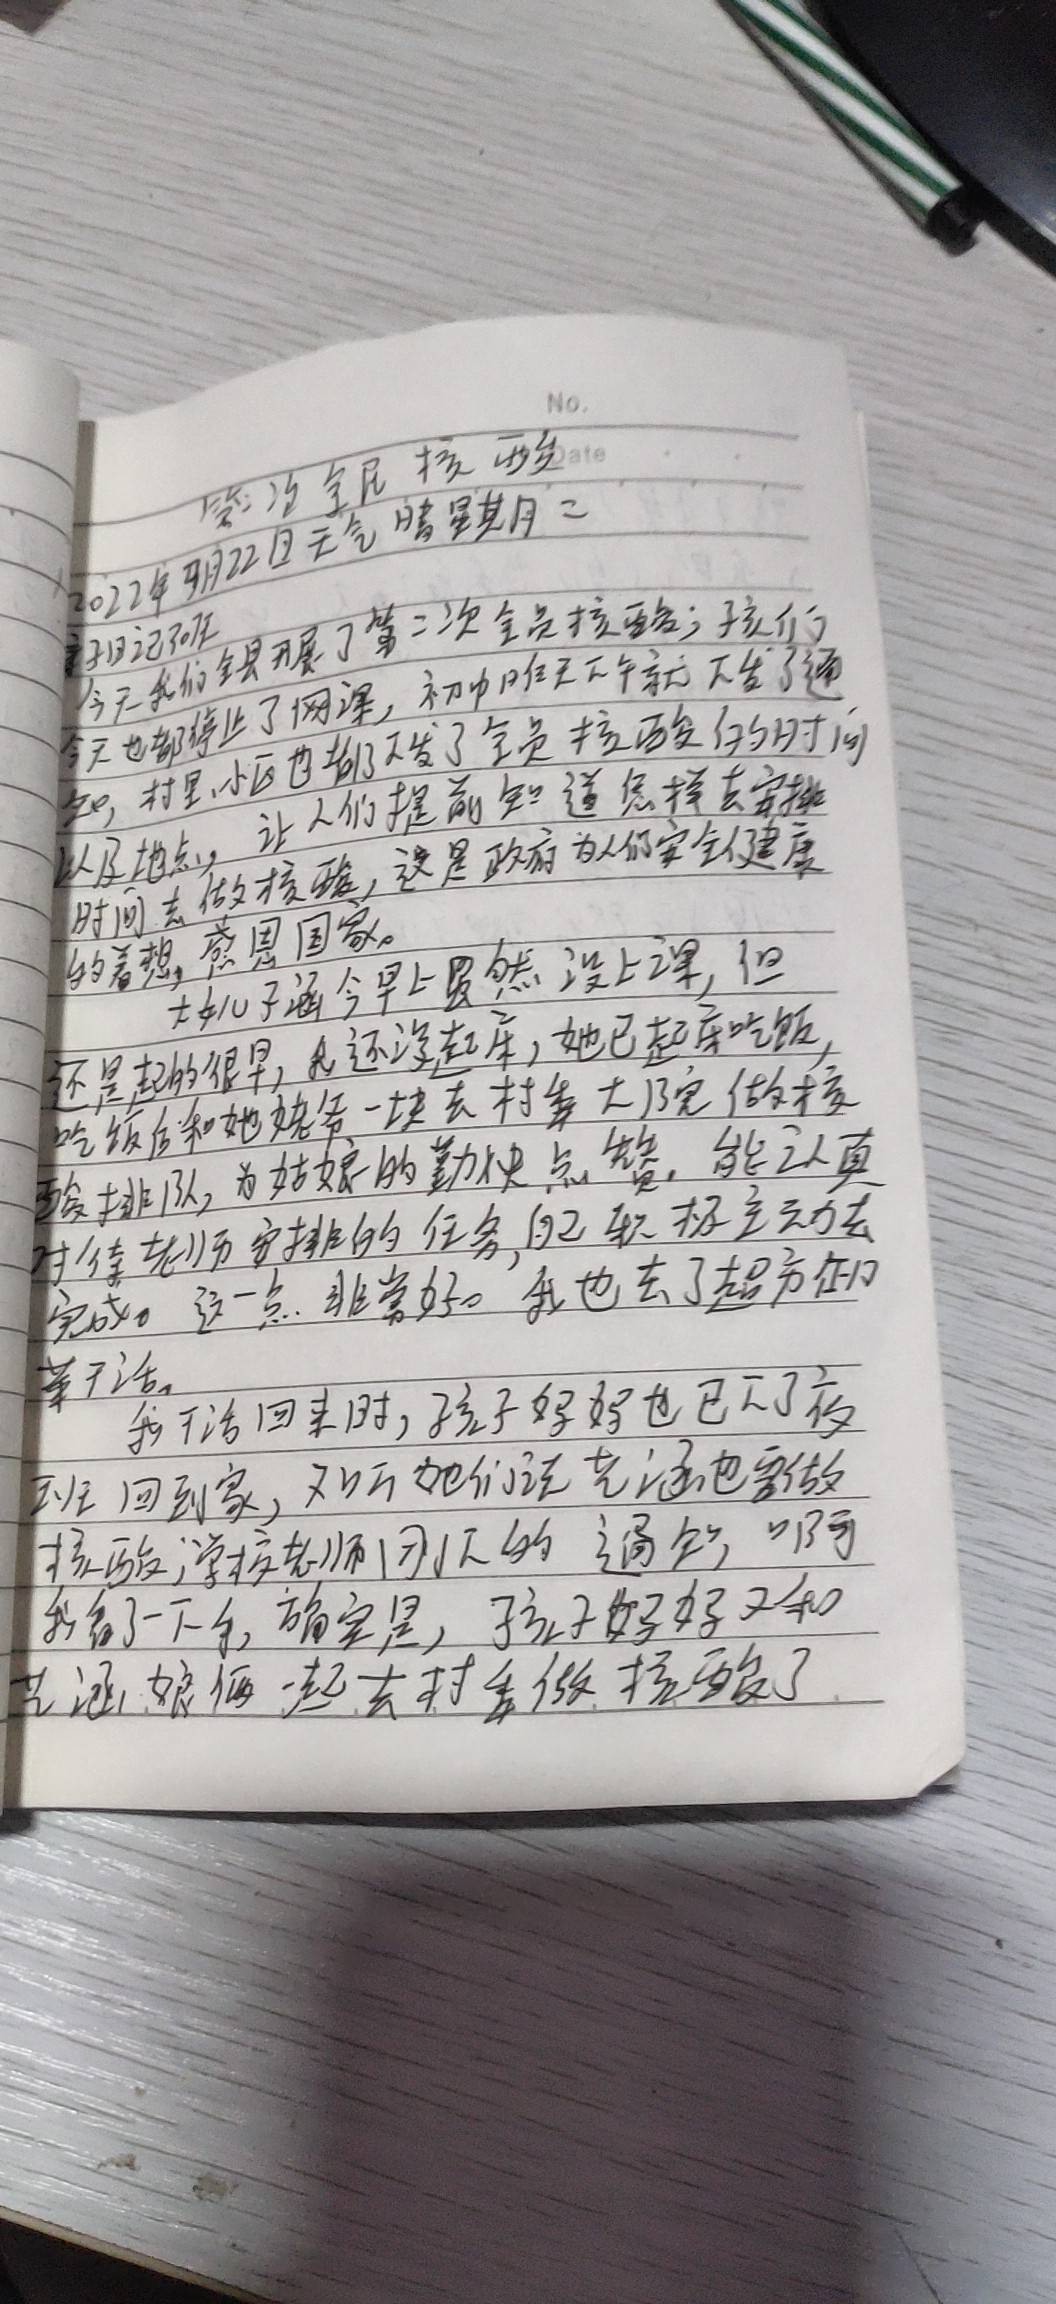 No.
Date
第二次全民核酸
2022年3月22日天气晴星期二
亲子日记30班
今天我们全县开展了第二次全员核酸；孩们
今天也都停止了网课，初中昨天下午就下发了通
知，村里、小区也都下发了全员核酸的时间
以及地点，让人们提前知道怎样去安排
时间去做核酸，这是政府为人们安全健康
的着想，感恩国家。
大女儿子涵今早上虽然没上课，但
还是起的很早，我还没起床，她已起床吃饭，
吃饭后和她姥爷一块去村委大院做核
酸排队，为姑娘的勤快点赞，能认真
对待老师安排的任务，自己积极主动去
完成。这一点非常好。我也去了超市在门
菜干活。
我干活回来时，孩子妈妈也已下了夜
班回到家，又听她们说艺涵也需做
核酸；学校老师刚下的通知，啊
我看了一下手，确实是，孩子妈妈又和
艺涵娘俩一起去村委做核酸了